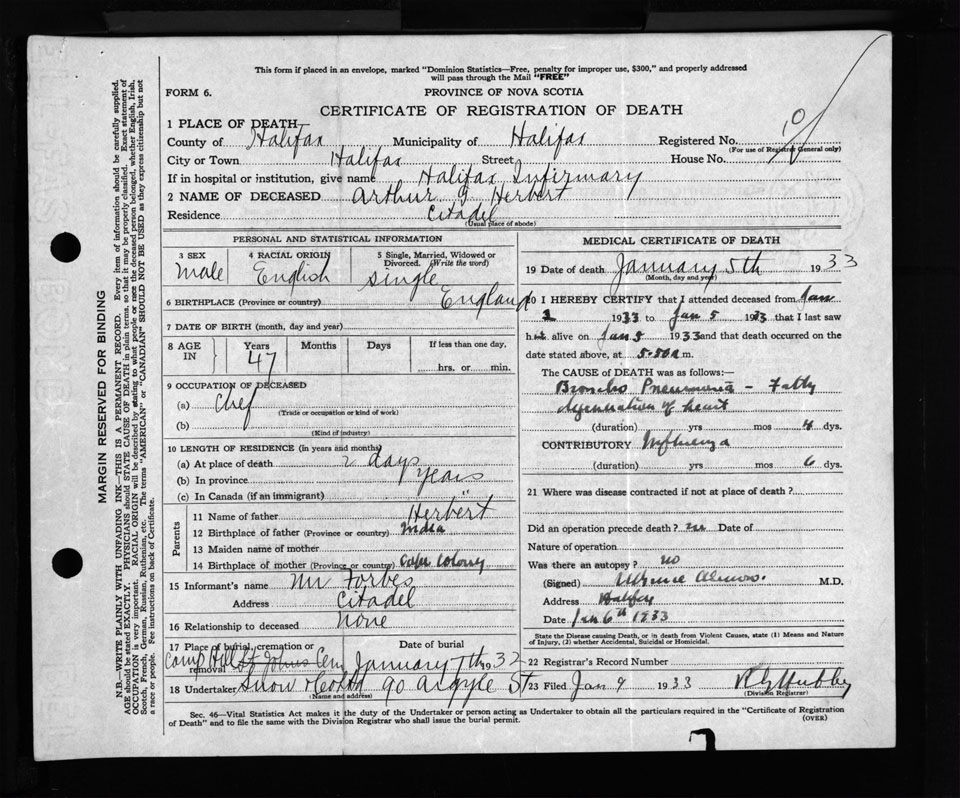 This form if placed in an envelope, marked "Dominion Statistics—Free, penalty for improper use, $300," and properly addressed
will pass through the Mail "FREE"
FORM 6.
PROVINCE OF NOVA SCOTIA
CERTIFICATE OF REGISTRATION OF DEATH
1 PLACE OF DEATH
County of Halifax Municipality of Halifax Registered No. 10
(For use of Registrar General only)
City or Town Halifax Street House No.
If in hospital or institution, give name Halifax Infirmary
2 NAME OF DECEASED Arthur G Herbert
Residence Citadel
(Usual place of abode)
PERSONAL AND STATISTICAL INFORMATION
3 SEX male
4 RACIAL ORIGIN English
5 Single, Married, Widowed or Divorced. (Write the word) single
6 BIRTHPLACE (Province or country) England
7 DATE OF BIRTH (month, day and year)
8 AGE IN Years 47 Months Days If less than one day,
hrs. or min.
9 OCCUPATION OF DECEASED
(a) Chef
(Trade or occupation or kind of work)
(b)
(Kind of industry)
10 LENGTH OF RESIDENCE (in years and months)
(a) At place of death 2 days
(b) In province years
(c) In Canada (if an immigrant) "
Parents
11 Name of father Herbert
12 Birthplace of father (Province or country) India
13 Maiden name of mother
14 Birthplace of mother (Province or country) Cape Colony
15 Informant's name Mr Forbes
Address Citadel
16 Relationship to deceased None
17 Place of burial, cremation or removal Camp Hill St Johns Cem
Date of burial January 7th 1932
18 Undertaker Snow & Co Ltd 90 Argyle St
(Name and address)
MEDICAL CERTIFICATE OF DEATH
19 Date of death January 5th 1933
(Month, day and year)
20 I HEREBY CERTIFY that I attended deceased from Jan
1933 to Jan 5 1933 that I last saw
him alive on Jan 5 1933 and that death occurred on the
date stated above, at 5.50 a m.
The CAUSE OF DEATH was as follows:—
Broncho Pneumonia - Fatty
degeneration of heart
(duration) yrs mos 4 dys.
CONTRIBUTORY Influenza
(duration) yrs mos 6 dys.
21 Where was disease contracted if not at place of death ?
Did an operation precede death? no Date of
Nature of operation
Was there an autopsy ? no
(Signed) M.D.
Address Halifax
Date Jan 6th 1933
State the Disease causing Death, or in death from Violent Causes, state (1) Means and Nature
of Injury, (2) whether Accidental, Suicidal or Homicidal.
22 Registrar's Record Number
23 Filed Jan 9 1933
(Division Registrar)
Sec. 46—Vital Statistics Act makes it the duty of the Undertaker or person acting as Undertaker to obtain all the particulars required in the "Certificate of Registration
of Death" and to file the same with the Division Registrar who shall issue the burial permit.
(OVER)
MARGIN RESERVED FOR BINDING
N.B.—WRITE PLAINLY WITH UNFADING INK—THIS IS A PERMANENT RECORD. Every item of information should be carefully supplied.
AGE should be stated EXACTLY. PHYSICIANS should STATE CAUSE OF DEATH in plain terms, so that it may be properly classified. Exact statement of
OCCUPATION is very important. RACIAL ORIGIN will be described by stating to what people or race the deceased person belonged, whether English, Irish,
Scotch, French, German, Russian, Ruthenian, etc. The terms "AMERICAN" or "CANADIAN" SHOULD NOT BE USED as they express citizenship but not
a race or people. See instructions on back of Certificate.